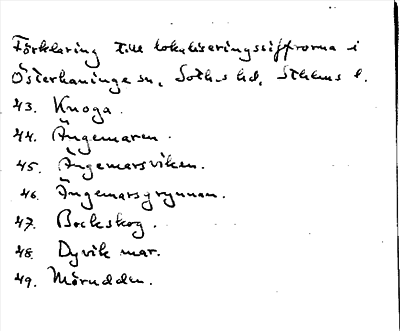 Förklaring till lokaliseringssiffrorna i
Österhaninge sn, Soth.s hd, Sthlms l.
43. Knoga.
44. Ängemaren.
45. Ängemarsviken.
46. Ängemarsgrynnan.
47. Bockskog.
48. Dyvik mar.
49. Mörudden.